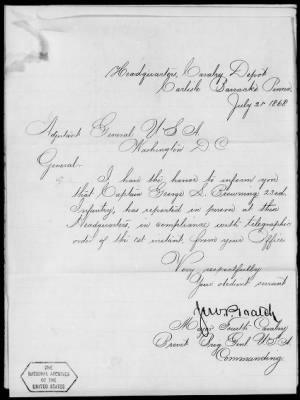 Headquarters, Cavalry Depot
Carlisle Barracks Penna
July 25 1868
Adjutant General U S A
Washington D C
General:
I have the honor to inform you
that Captain George S. Browning 23rd
Infantry, has reported in person at these
Headquarters, in compliance with telegraphic
order of the 21st instant, from your Office
Very respectfully
Your obedient servant
Major Fourth Cavalry
Brevet Brig Genl U S A
Commanding.
THE
NATIONAL ARCHIVES
OF THE
UNITED STATES